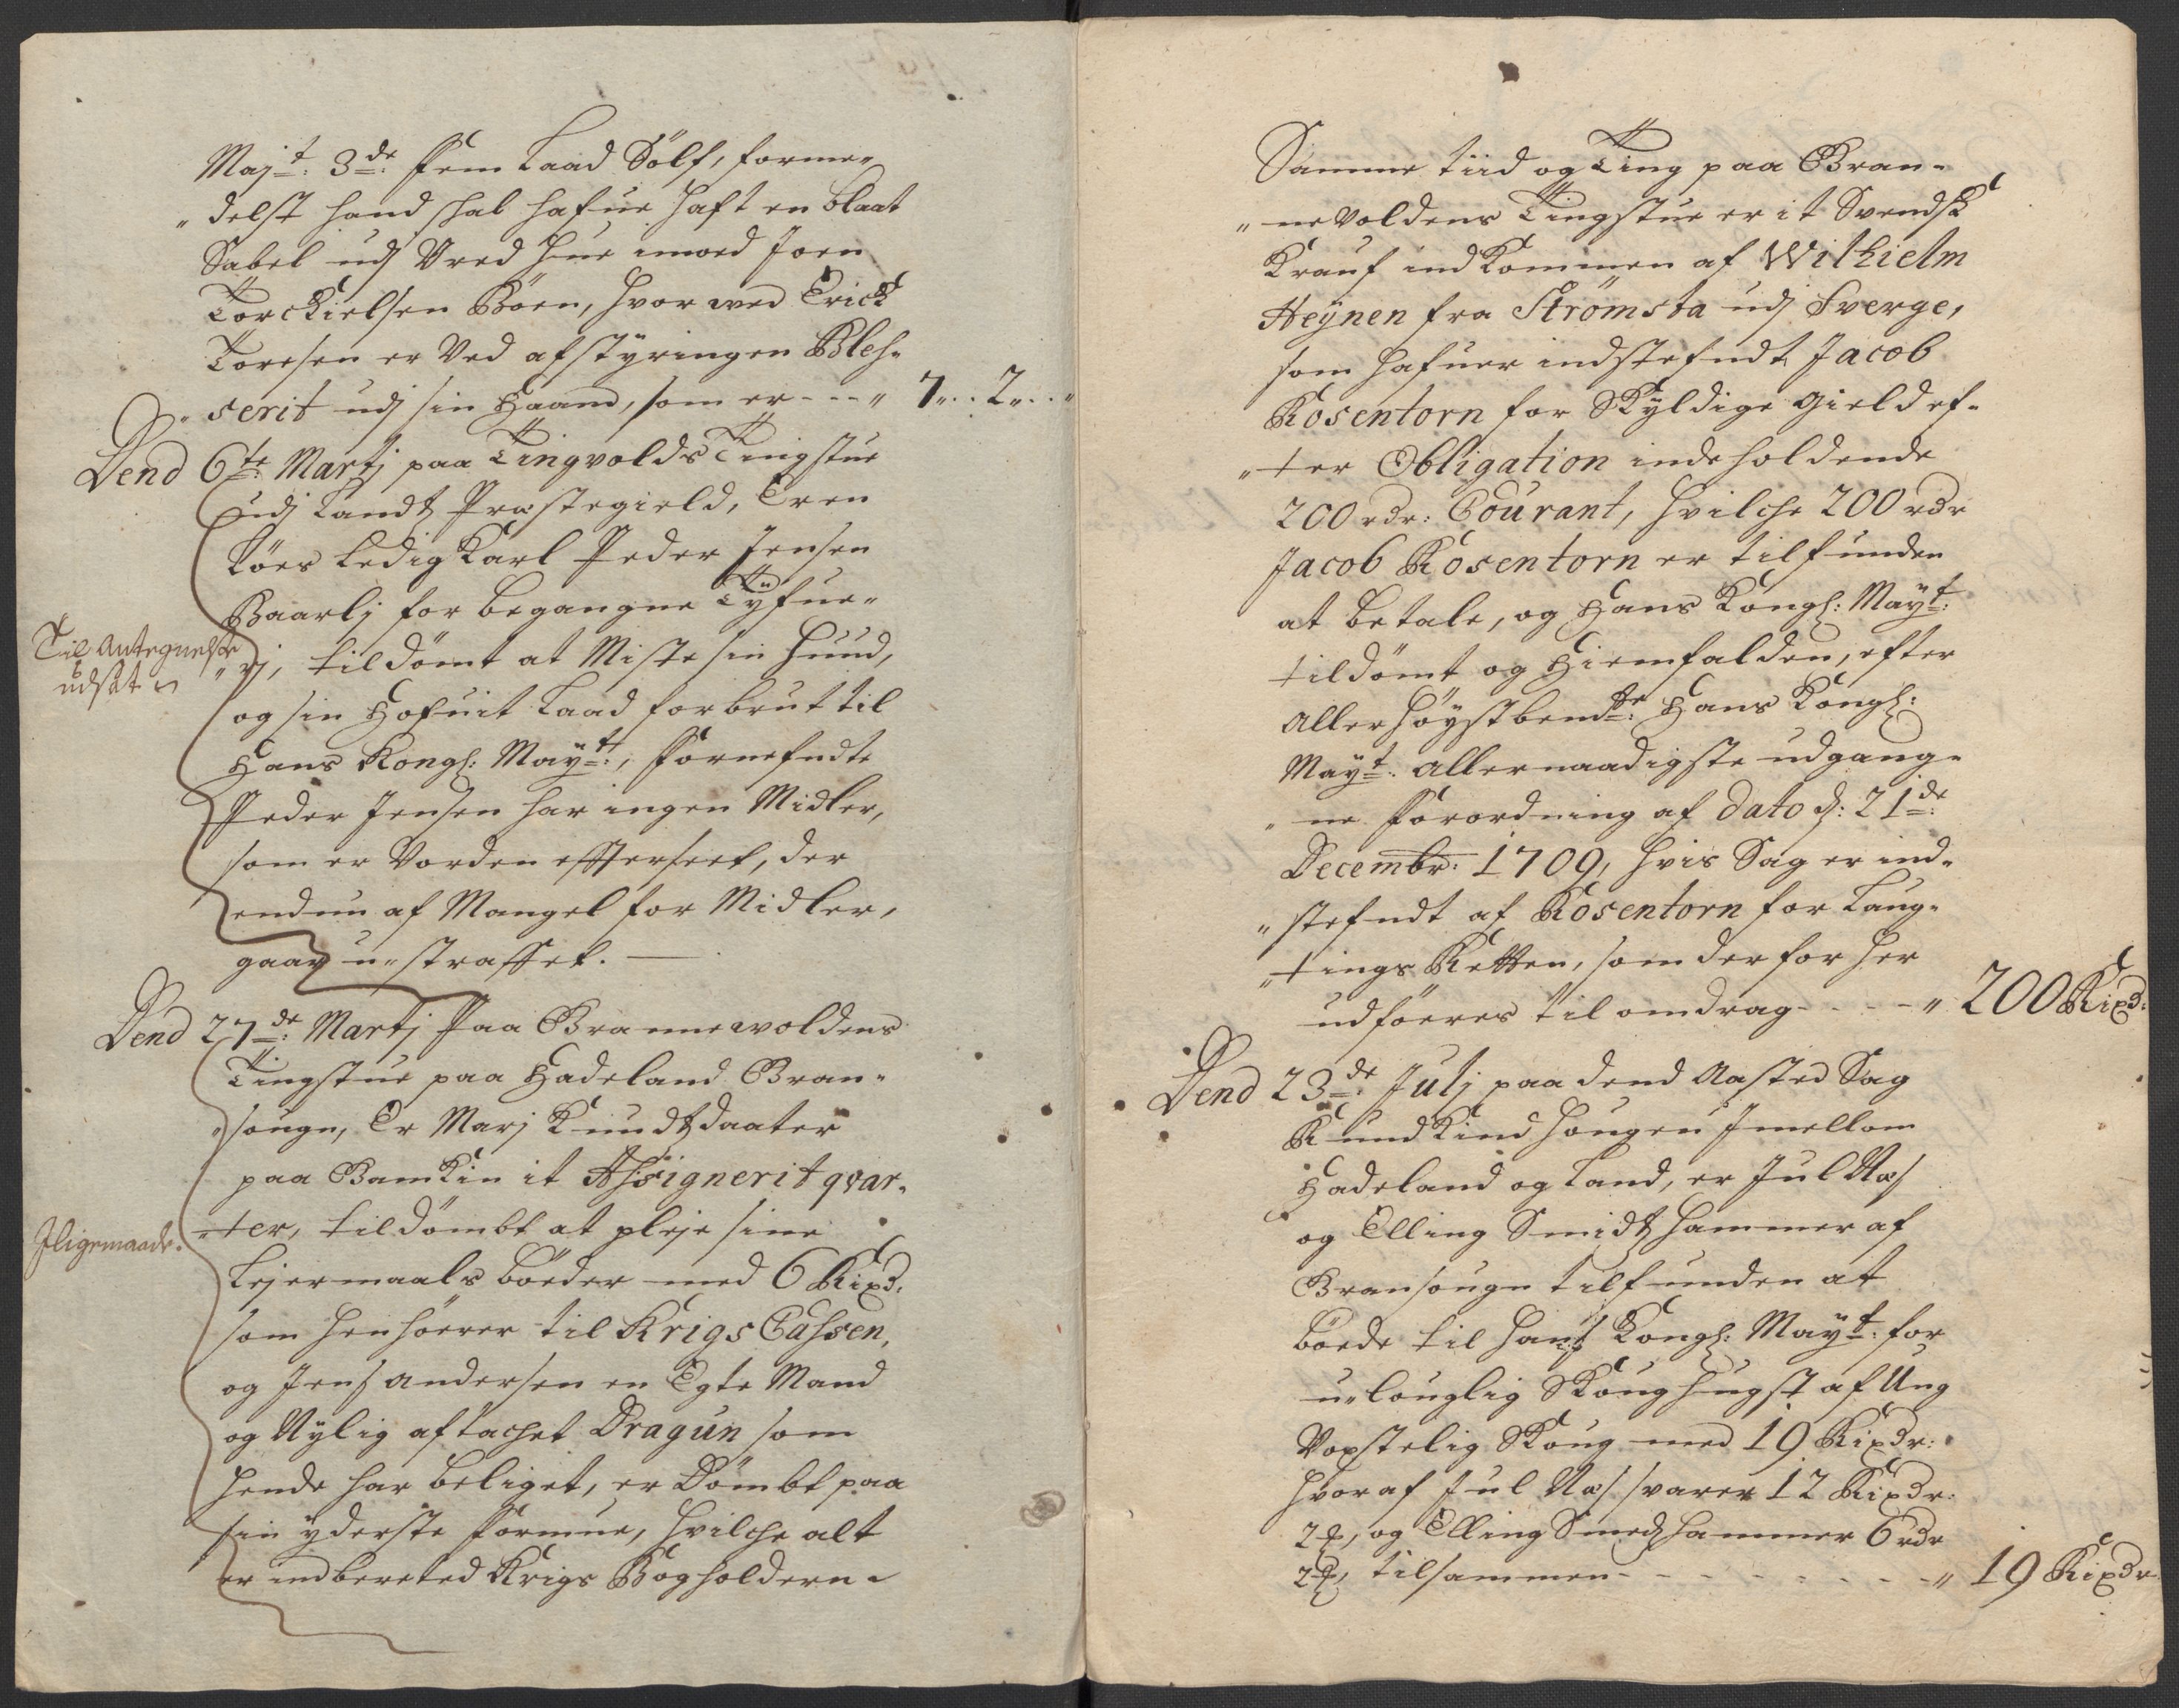 Majt: 3de: fem Laad Sölf, forme„
„delst hand shal hafue haft en blaat
Sabel udj Vred hue imoed Joen
Torckielsen Böen, hvor wed Erick
Toresen er Ved afstÿringen Bles„
„serit udj sin Haand, som er - - - „ 7„ . . 2„ . . „
Dend 6te Martj paa Tingvolds Tingstue
udj Landtz Præstegield, Er en
Löes Ledig Karl Peder Jensen
Baarlj for begangne Tÿfue„
Til Antegnelse
udsat
„rj, til dömt at Miste sin Huud,
og sin Hofuit Laad forbrut til
Hans Kongl: Maÿtt:, fornefndte
Peder Jensen har ingen Midler,
som er Vorden effterseet, der
endnu af Mangel for Midler,
gaar u-straffet. —
Dend 27de: Martj Paa Brannewoldens
Tingstue paa Hadeland Bran„
„sougn, Er Marj Knudtzdaater
paa Bamkin it Assignerit qvar„
Jligemaade.
„ter, tildömbt at pleje sine
Lejermaals böeder med 6 Rixd.
som henhöerer til Krigs Cassen,
og Jens Andersen en Egte Mand
og Nÿlig aftachet Dragun som
hende har beliget, er Dömbt paa
sin ÿderste formue, hvilche alt
er indbereted Krigs Bogholdern
Samme tiid og Ting paa Bran„
„nevoldens Tingstue er it Svendsk
Krauf ind Kommen af Wilhielm
Heÿnen fra Strömsta udj Sverge,
som hafuer indstefndt Jacob
Rosentorn for Skÿldige gield ef„
„ter Obligation indeholdende
200 rdr: Courant, hvilche 200 rdr
Jacob Rosentorn er tilfunden
at betale, og Hans Kongl: Maÿt:
tildömt og Hiemfalden, efter
Allerhöÿstbemte: Hans Kongl:
Maÿt: allernaadigste udgang„
„ne forordning af dato d: 21de:
Decembr: 1709, hvis Sag er ind„
„stefndt af Rosentorn for Laug„
„tings Retten, som der for her
udföeres til omdrag - - - - „ 200 Rixd:
Dend 23de: Julj paa dend Aasted Sag
Kund Kind hougen Jmellom
Hadeland og Land, er Jul Næs
og Elling Smidtzhammer af
Bransougn tilfunden at
böede til Hans Kongl: Maÿt: for
u-louglig Skoughugst af Ung
Voxstelig Skoug med 19 Rixdr:
hvoraf Jul Næs svarer 12 Rixdr:
2 , og Elling Smedshammer 6 rdr
2 , tilsammen - - - - - - - - - „ 19 Rixdr